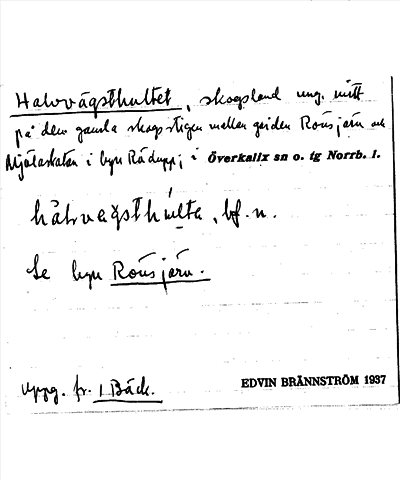 Halvvägsthultet, skogsland ung. mitt
på den gamla skogsstigen mellan gården Rönsjärv och
i byn Räktjärv i Överkalix sn o. tg Norrb. l.
hàlvvägsthúlta, bf. n.
Se byn Rönsjärv.
Uppg. fr. 1 Bäck.
EDVIN BRÄNNSTRÖM 1937